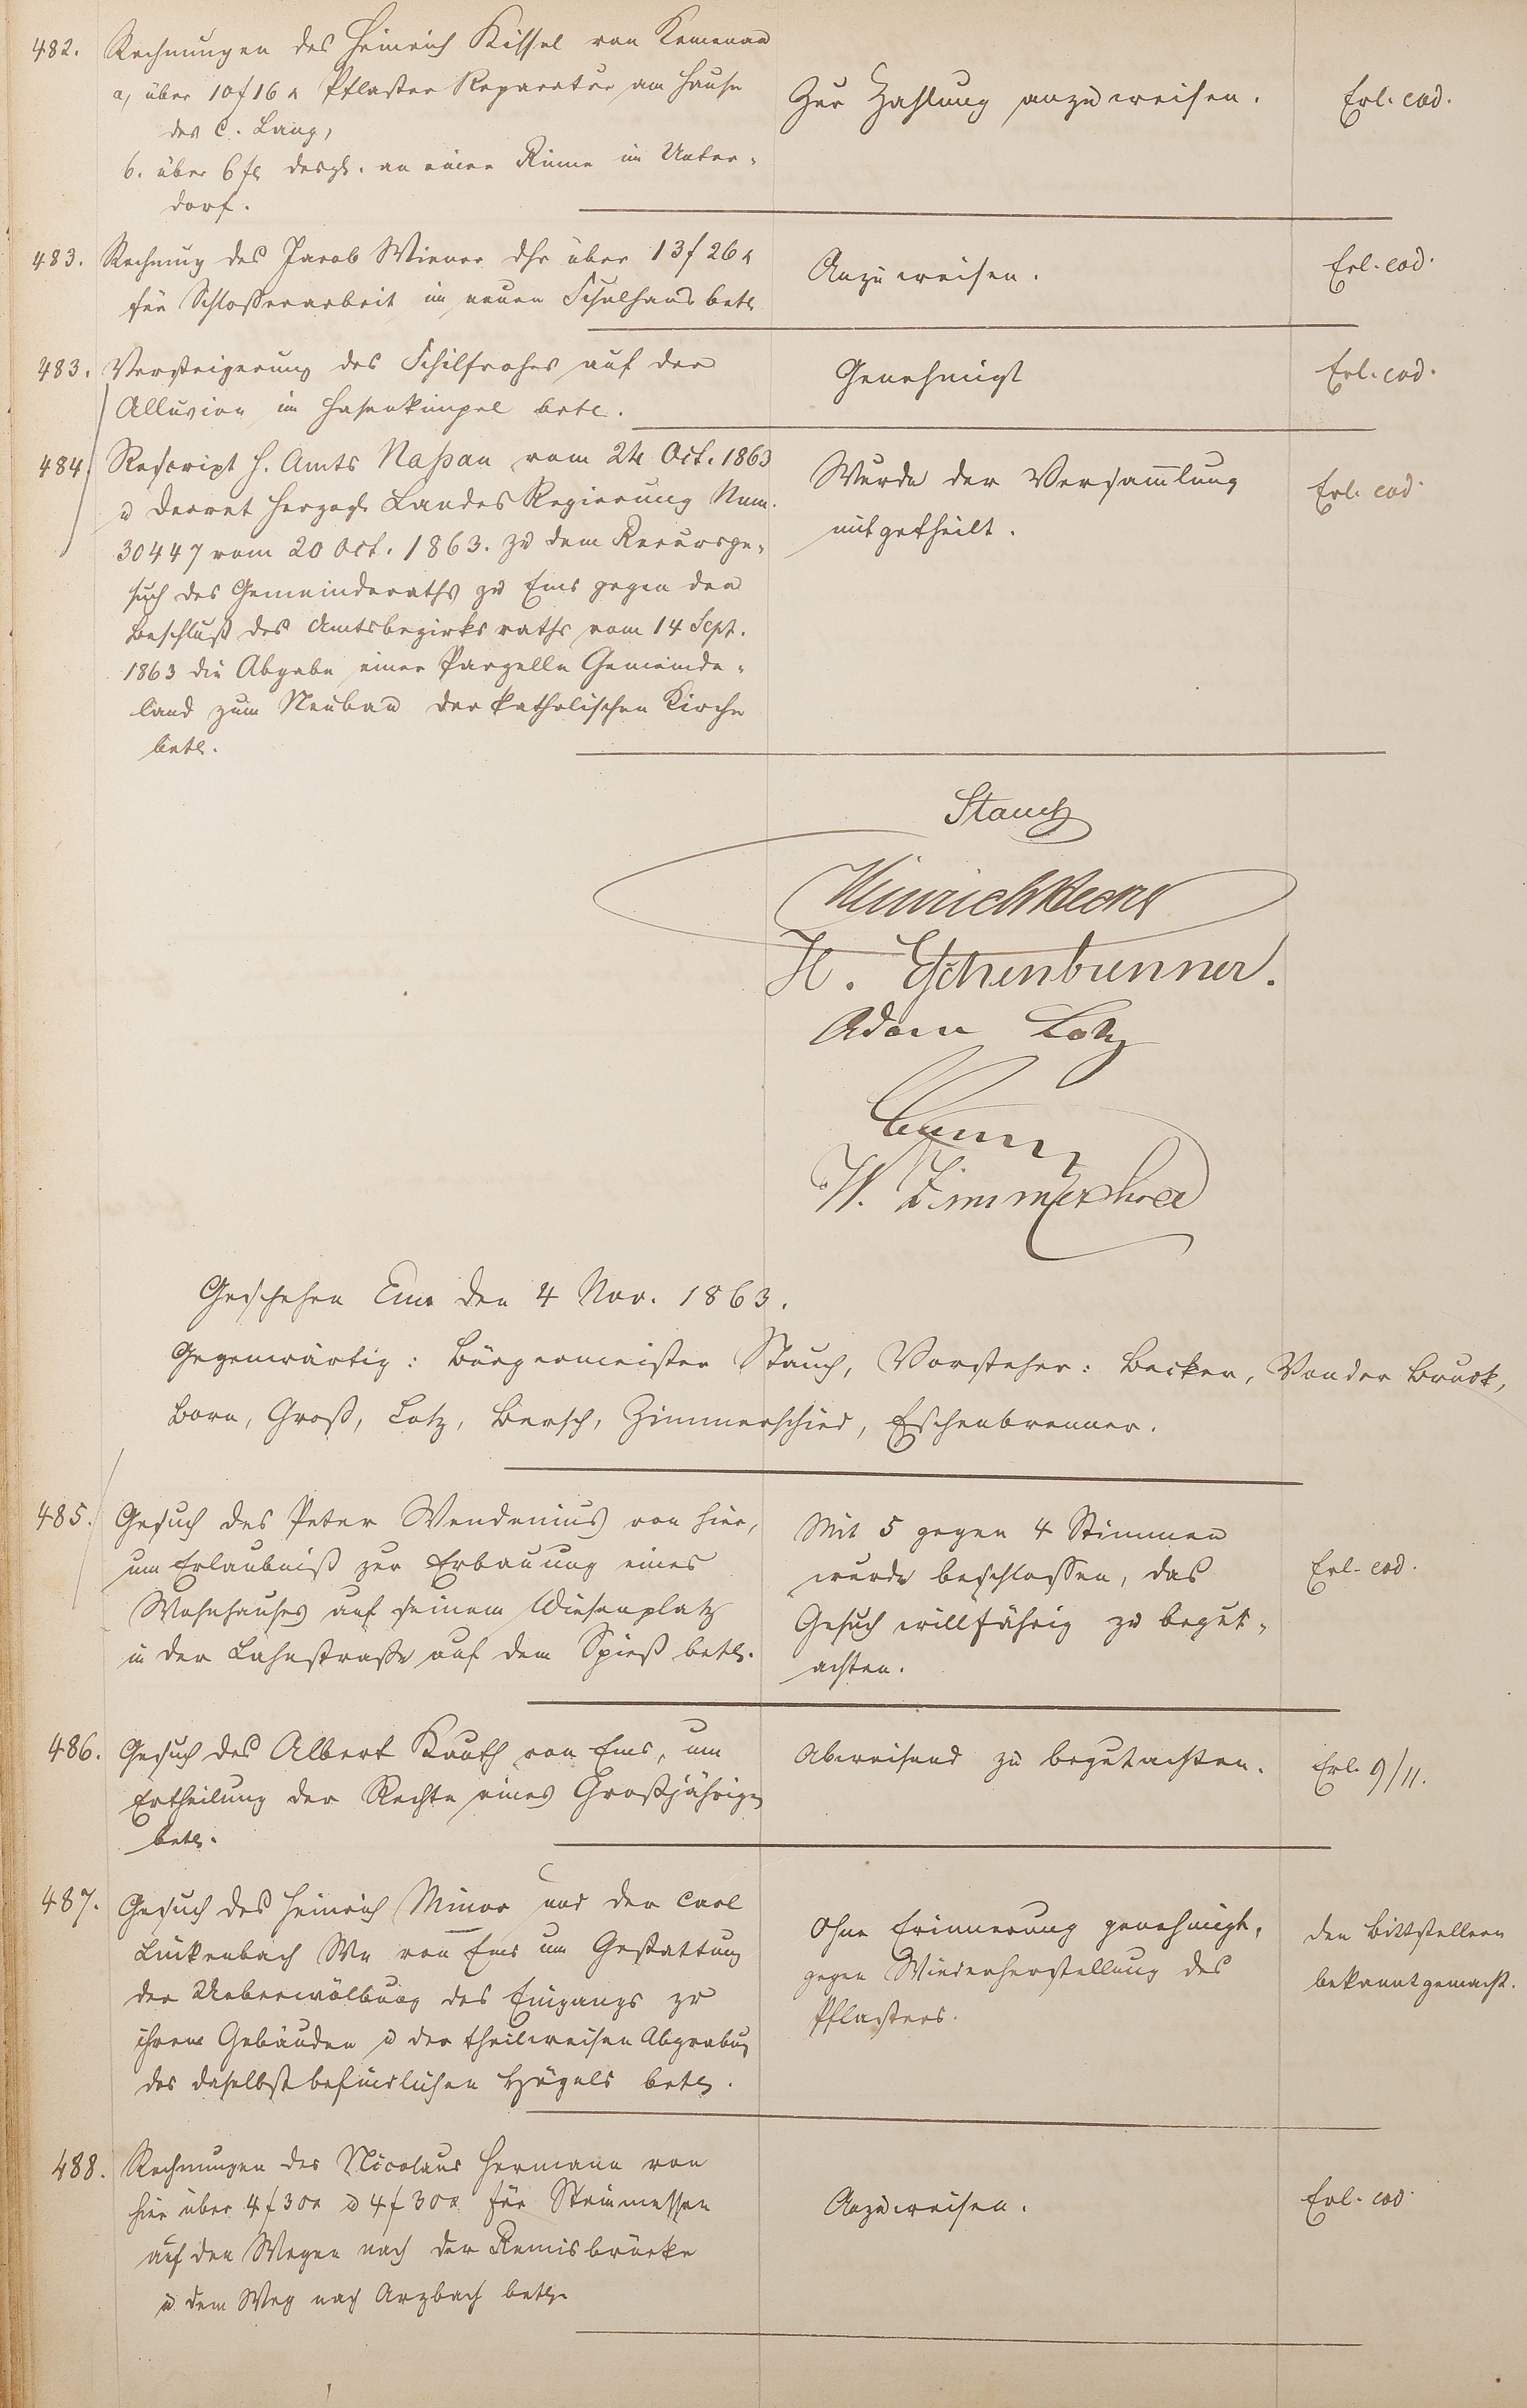 482. Rechnungen des Heinrich Kissel von Kemenau
a, über 10 f 16 x Pflaster Reparatur am Hause
des C. Lang,
b. über 6 fl desgl. an einer Rinne im Unter-
dorf.
Zur Zahlung anzuweisen.
Erl. eod.
483. Rechnung des Jacob Wiener dhr über 13 f 26 x
für Schlosserarbeit im neuen Schulhaus betr.
Anzuweisen.
Erl. eod.
483. Versteigerung des Schilfrohrs auf der
Alluvion im Hasenkümpel betr.
Genehmigt
Erl. eod.
484. Rescript H. Amts Naßau vom 24 Oct. 1863
u Decret Herzogl. Landes Regierung Num.
30447 vom 20 Oct. 1863. zu dem Recursge-
such des Gemeinderaths zu Ems gegen den
Beschluß des Amtsbezirksraths vom 14 Sept.
1863 die Abgabe einer Parzelle Gemeinde-
land zum Neubau der katholischen Kirche
betr.
Wurde der Versammlung
mitgetheilt.
Erl. eod.
Stauch
Heinrich Becker
H. Eschenbrenner.
Adam Lotz
W. Zimmerschied
Geschehen Ems den 4 Nov. 1863.
Gegenwärtig: Bürgermeister Stauch, Vorsteher: Becker, Von der Bruck,
Born, Groß, Lotz, Bersch, Zimmerschied, Eschenbrenner.
485. Gesuch des Peter Wendenius von hier,
um Erlaubniß zur Erbauung eines
Wohnhauses auf seinem Wiesenplatz
in der Lahnstraße auf dem Spieß betr.
Mit 5 gegen 4 Stimmen
wurde beschlossen, das
Gesuch willfährig zu begut-
achten.
Erl. eod.
486. Gesuch des Albert Kauth von Ems, um
Ertheilung der Rechte eines Großjährigen
betr.
Abweisend zu begutachten.
Erl. 9/11.
487. Gesuch des Heinrich Minor und der Carl
Linkenbach We von Ems um Gestattung
der Ueberwölbung des Eingangs zu
ihren Gebäuden u der theilweisen Abgrabung
des daselbst befindlichen Hügels betr.
Ohne Erinnerung genehmigt,
gegen Wiederherstellung des
Pflasters.
den Bittstellern
bekannt gemacht.
488. Rechnungen des Nicolaus Hermann von
hier über 4 f 30 x u 4 f 30 x für Steinmessen
auf den Wegen nach der Remisbrücke
u dem Weg nach Arzbach betr.
Anzuweisen.
Erl. eod.